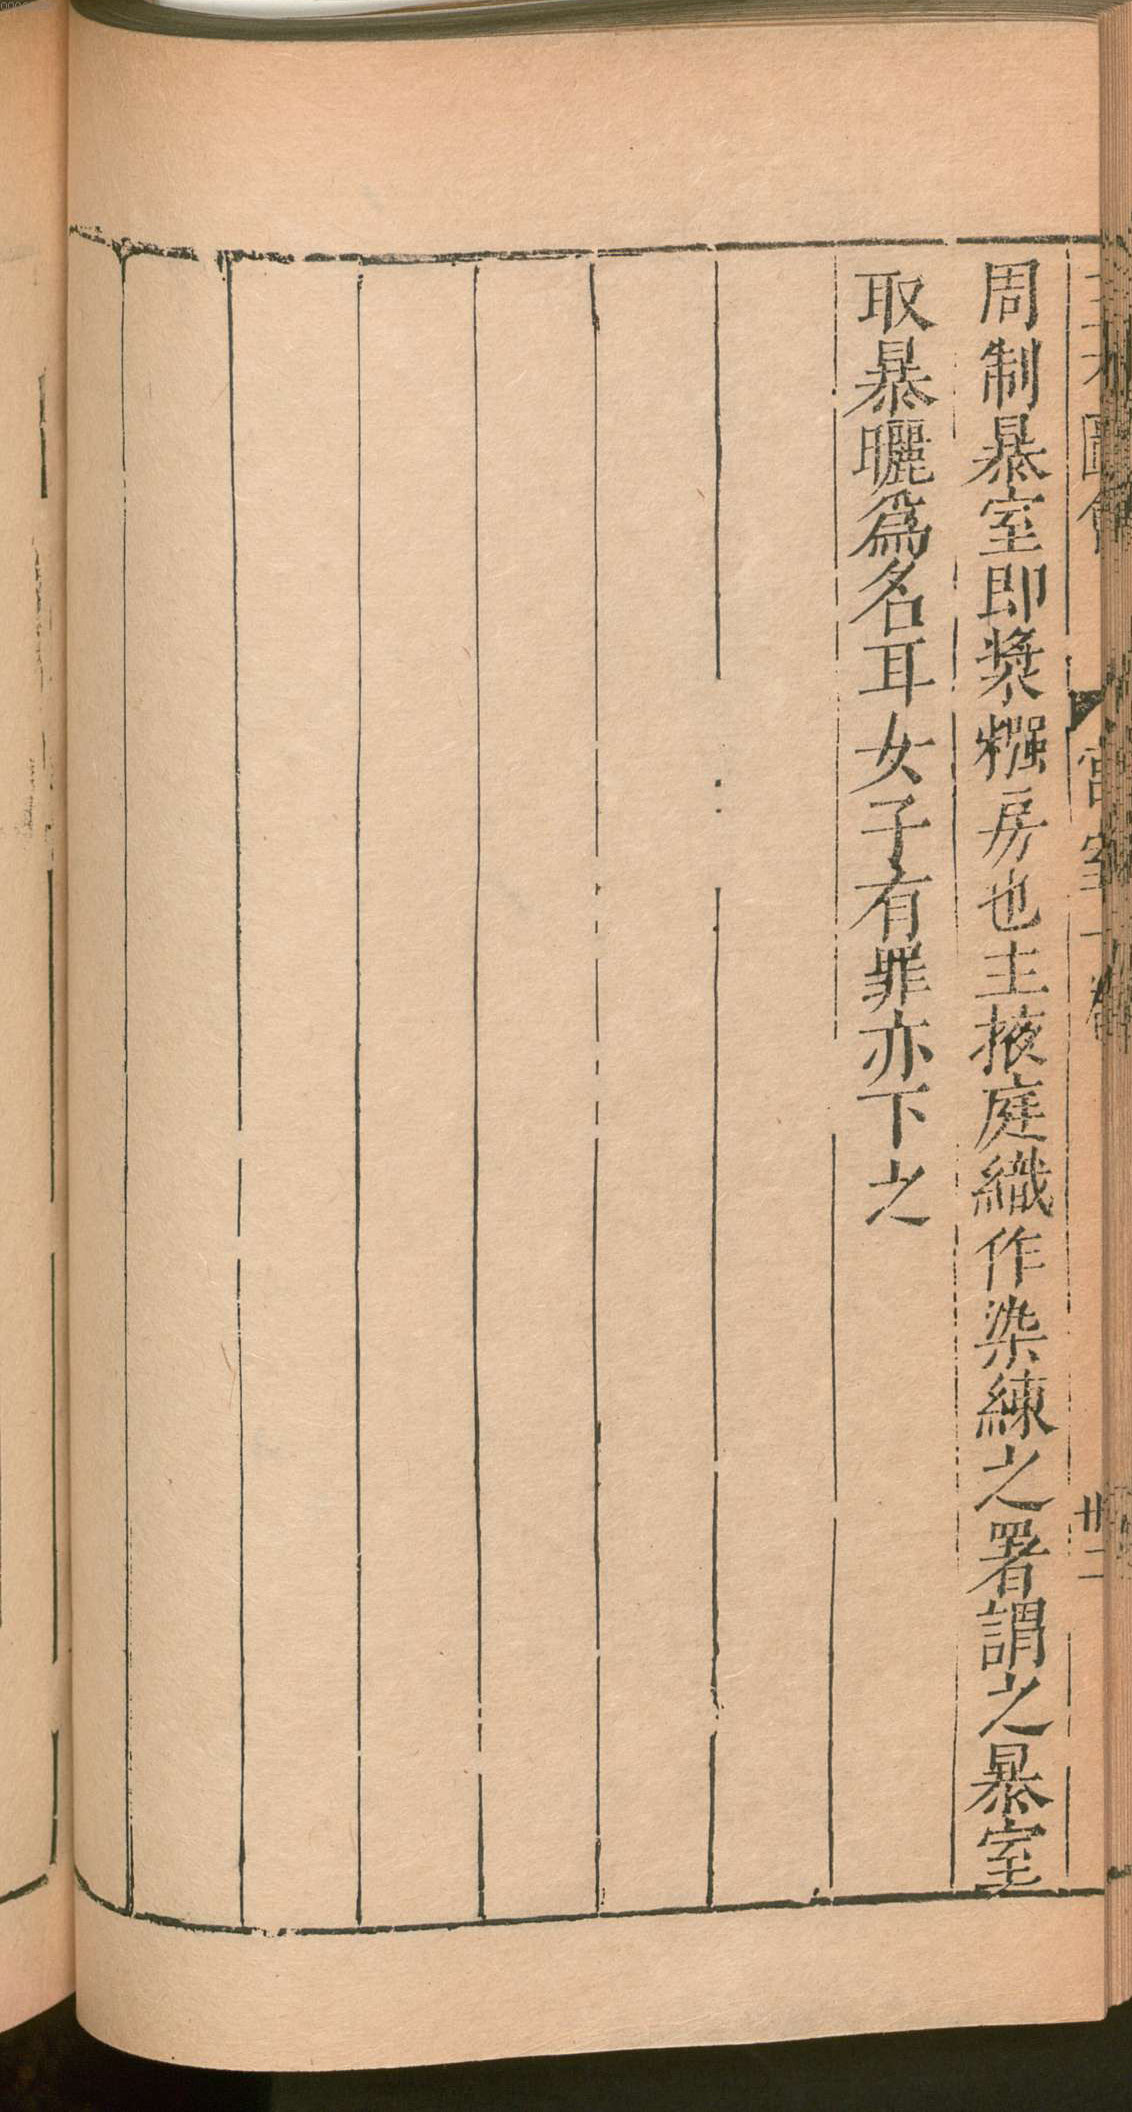 周制暴室即漿糨房也主掖庭織作染練之署謂之暴室
取暴曬爲名耳女子有罪亦下之
圖會
宮室一卷
卅二